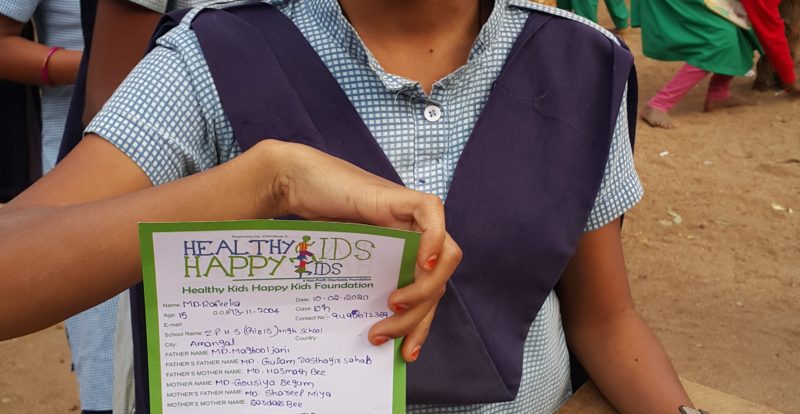 HEALTHY KIDS
HAPPY KIDS
A Non-Profit Charitable Foundation
Healthy Kids Happy Kids Foundation
Name: MD. Rafeeka Date: 10-02-2020
Age: 15 D.O.B 13-11-2004 Class: 10th
E-mail: Contact No:-
School Name: Z.P.H.S (Girls) High School
City: Amangal Country:
FATHER NAME: MD. Magbool jani
FATHER'S FATHER NAME: MD. Gulam Dasthagir sahab
FATHER'S MOTHER NAME: MD. Hasmath Bee
MOTHER NAME: MD. Gousiya Begum
MOTHER'S FATHER NAME: MD. Shareef Miya
MOTHER'S MOTHER NAME: Sardar Bee